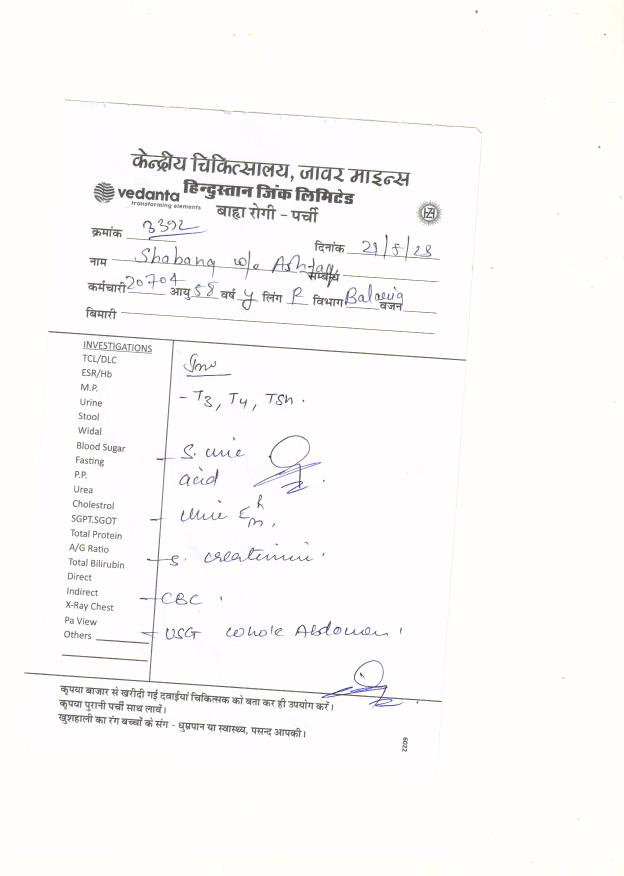 केन्द्रीय चिकित्सालय, जावर माइन्स
vedanta हिन्दुस्तान जिंक लिमिटेड
transforming elements
बाह्य रोगी - पर्ची
HZ
क्रमांक 3392
दिनांक 21/8/23
नाम Shabana w/o सम्बन्ध
कर्मचारी 20704 आयु 58 वर्ष y लिंग F विभाग Balaria वजन
बिमारी
INVESTIGATIONS
TCL/DLC
ESR/Hb
M.P.
Urine - T3, T4, TSH.
Stool
Widal
Blood Sugar
Fasting - S. uric
P.P. acid
Urea
Cholestrol
SGPT.SGOT - Urine
Total Protein
A/G Ratio
Total Bilirubin - S. creatinine.
Direct
Indirect - CBC.
X-Ray Chest
Pa View
Others - USG whole Abdomen.
कृपया बाजार से खरीदी गई दवाईयां चिकित्सक को बता कर ही उपयोग करें।
कृपया पुरानी पर्ची साथ लावें।
खुशहाली का रंग बच्चों के संग - धुम्रपान या स्वास्थ्य, पसन्द आपकी।
6022